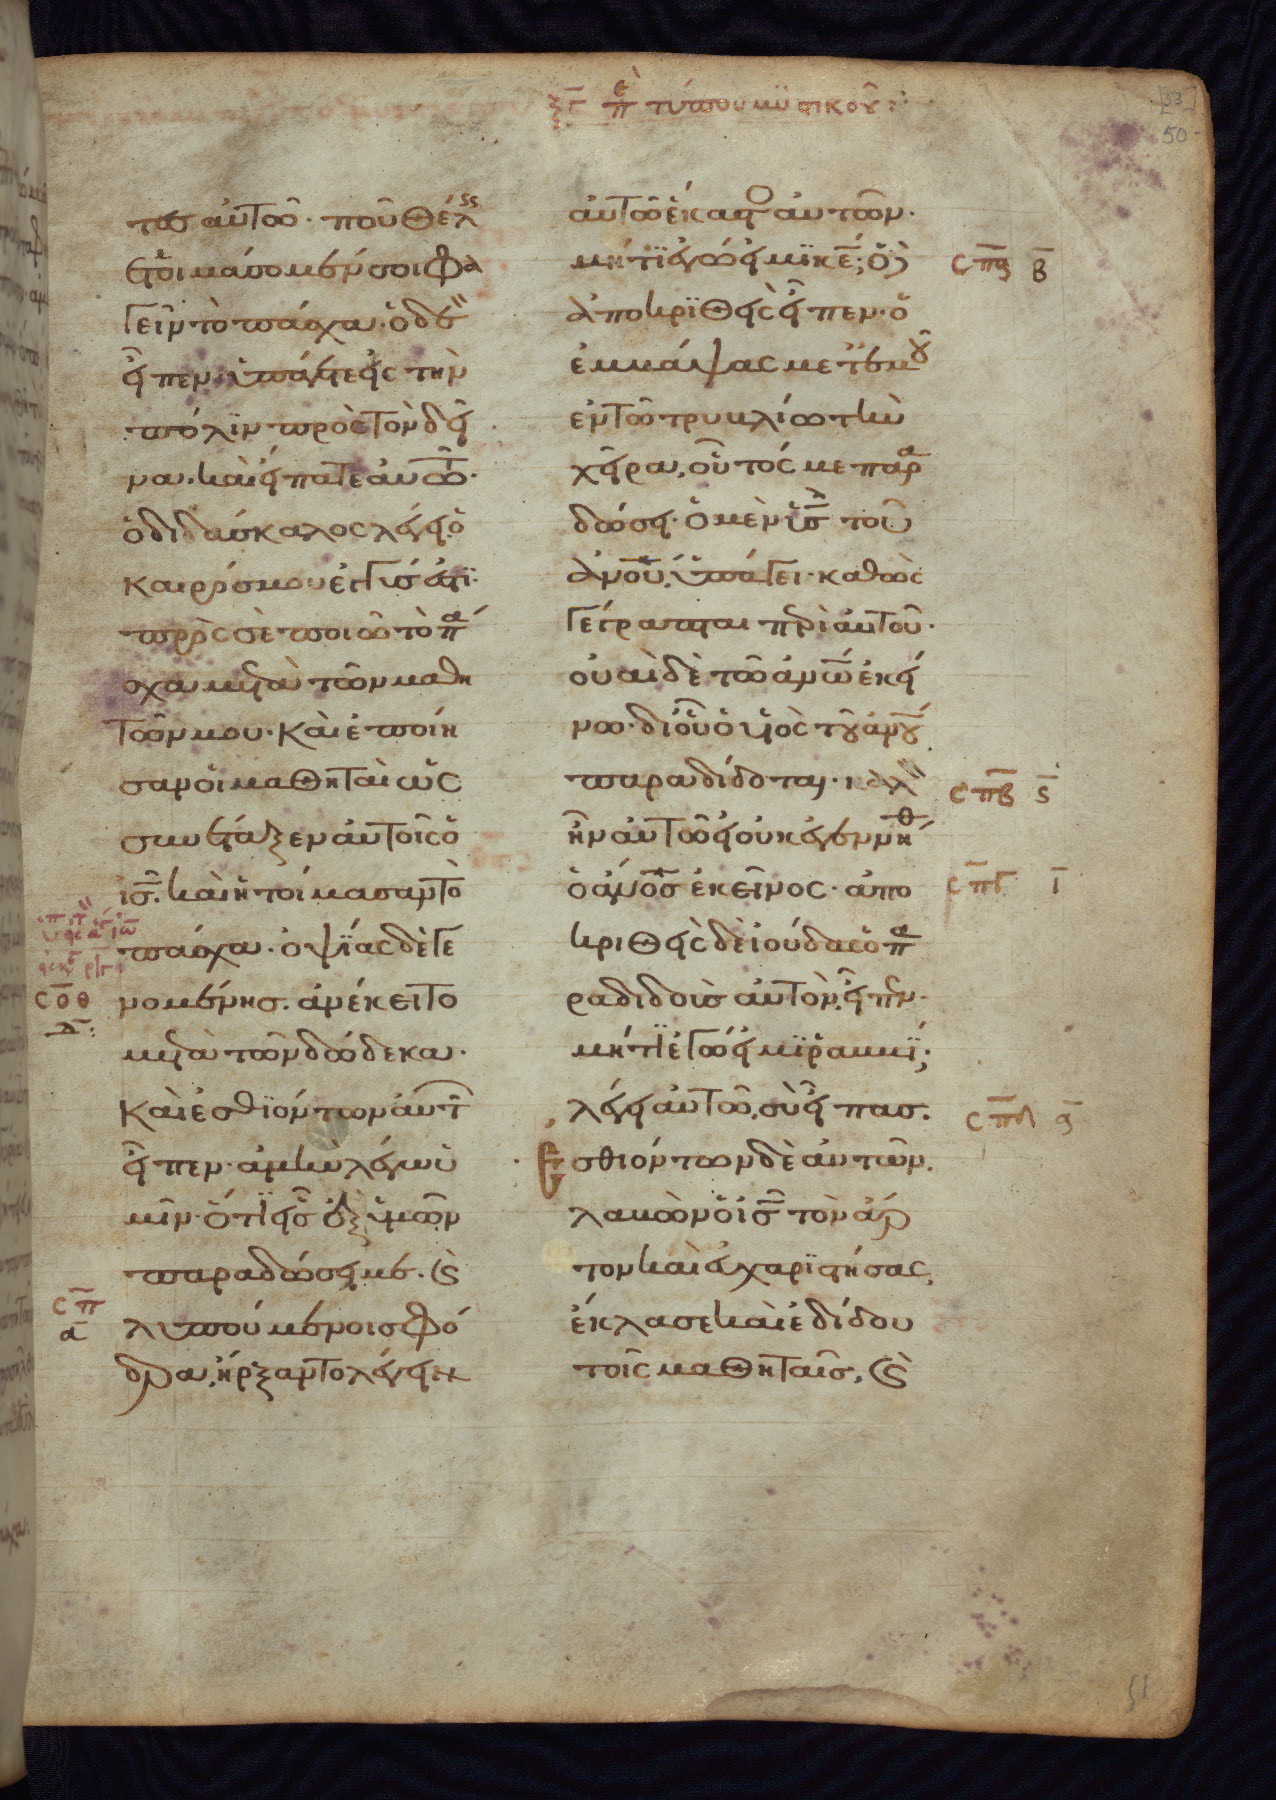 ξγ πε τύπου μυστικοῦ:
53
50
τες αὐτῶ· ποῦ θέλεις
ἑτοιμάσομέν σοι φα
γεῖν τὸ πάσχα· ὁ δὲ
εἶπεν· ὑπάγετε εἰς τὴν
πόλιν πρὸς τὸν δεῖ
να· καὶ εἴπατε αὐτῶ·
ὁ διδάσκαλος λέγει· ὁ
καιρός μου ἐγγύς ἐστι·
πρὸς σὲ ποιῶ τὸ πά
σχα μετὰ τῶν μαθη
τῶν μου· καὶ ἐποίη
σαν οἱ μαθηταὶ ὡς
συνέταξεν αὐτοῖς ὁ
ις· καὶ ἡτοίμασαν τὸ
πάσχα· ὀψίας δὲ γε
νομένης· ἀνέκειτο
μετὰ τῶν δώδεκα·
καὶ ἐσθιόντων αὐτ
εἶπεν· ἀμὴν λέγω ὑ
μῖν· ὅτι εἷς ἐξ ὑμῶν
παραδώσει με· καὶ
λυπούμενοι σφό
δρα, ἤρξαντο λέγειν
σοθ
δ:
σπ
α
αὐτῶ ἕκαστος αὐτῶν·
μήτι ἐγώ εἰμι κε; ὁ δὲ
ἀποκριθεὶς εἶπεν· ὁ
ἐμβάψας μετ' ἐμοῦ
ἐν τῶ τρυβλίω τὴν
χεῖρα, οὗτός με παρα
δώσει· ὁ μὲν υἱς τοῦ
ἀνου, ὑπάγει· καθὼς
γέγραπται περὶ αὐτοῦ·
οὐαὶ δὲ τῶ ἀνω ἐκεί
νω· δι' οὗ ὁ υἱὸς τοῦ ἀνου
παραδίδοται· καλὸν
ἦν αὐτῶ εἰ οὐκ ἐγεννήθη
ὁ ἀνος ἐκεῖνος· ἀπο
κριθεὶς δὲ ἰούδας ὁ πα
ραδιδοὺς αὐτὸν, εἶπεν·
μήτι ἐγώ εἰμι ῥαββί;
λέγει αὐτῶ, σὺ εἶπας·
Ἐσθιόντων δὲ αὐτῶν,
λαβὼν ὁ ις τὸν ἄρ
τον καὶ εὐχαριστήσας,
ἔκλασε καὶ ἐδίδου
τοῖς μαθηταῖς, καὶ
β
σπβ ϛ
σπγ ι
σπδ
51